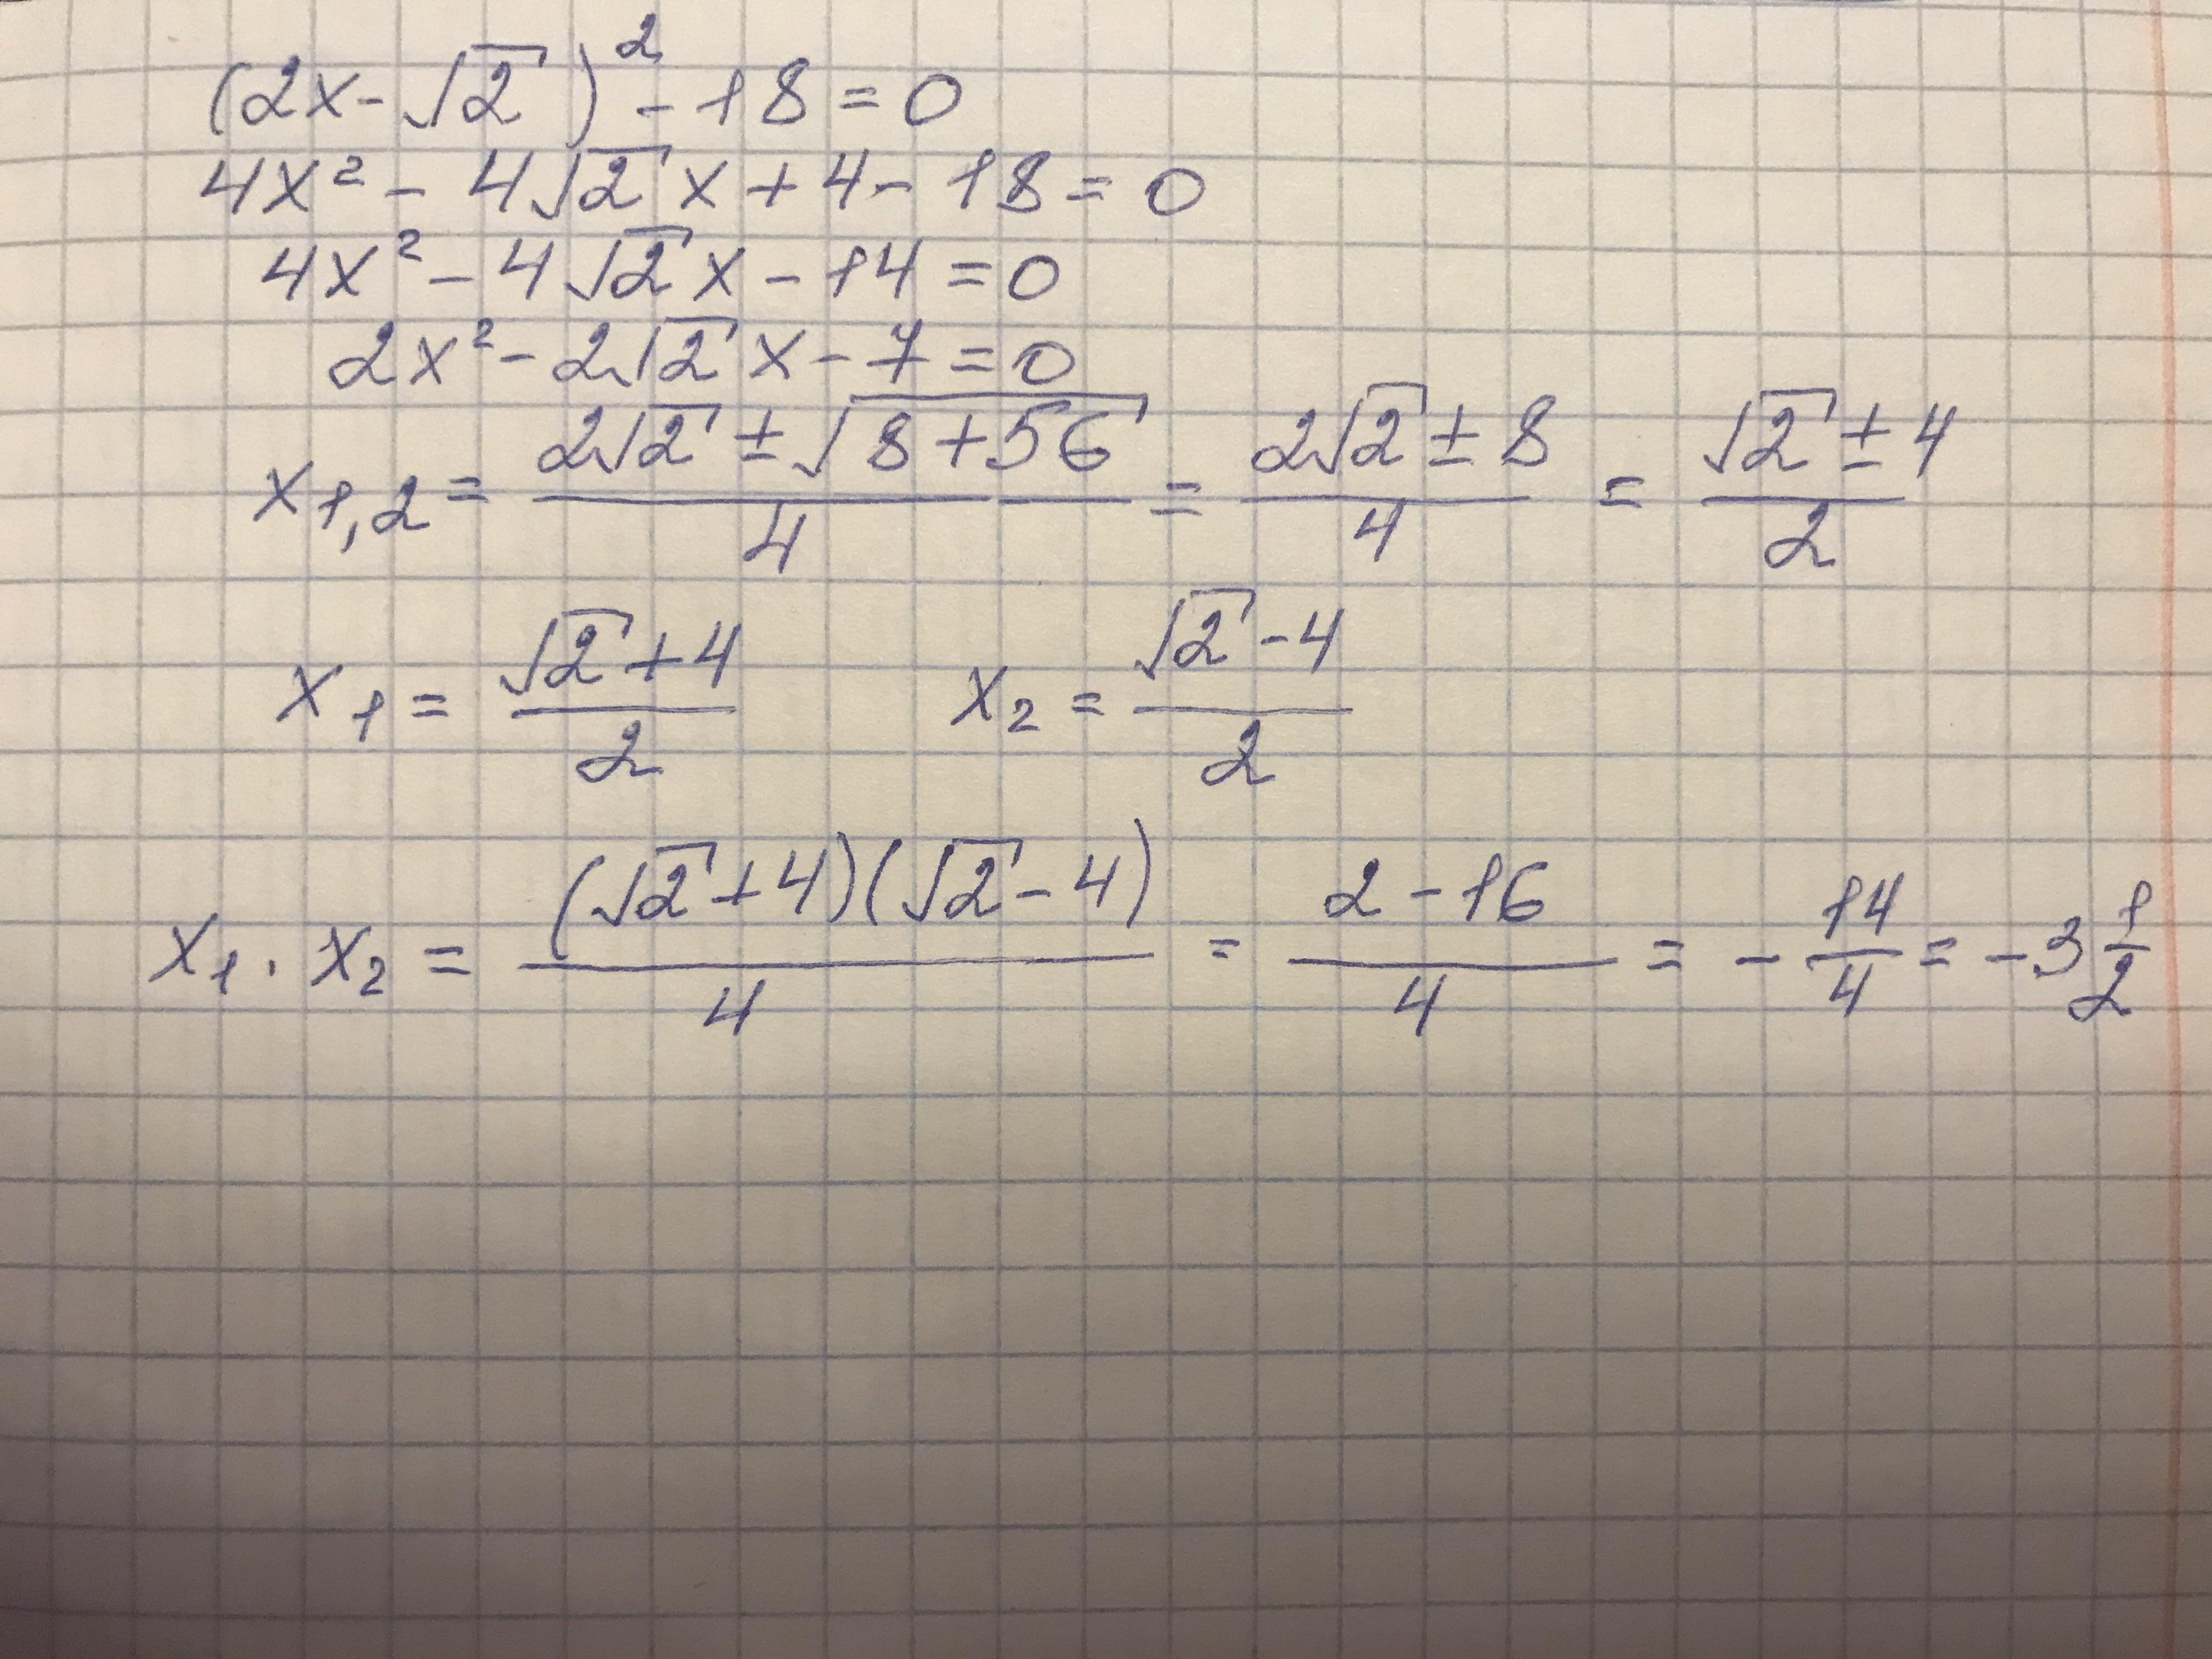 (2x-√2)² - 18 = 0
4x² - 4√2x + 4 - 18 = 0
4x² - 4√2x - 14 = 0
2x² - 2√2x - 7 = 0
x₁,₂ = (2√2 ± √(8+56))/4 = (2√2 ± 8)/4 = (√2 ± 4)/2
x₁ = (√2+4)/2 x₂ = (√2-4)/2
x₁ · x₂ = ((√2+4)(√2-4))/4 = (2-16)/4 = -14/4 = -3 1/2